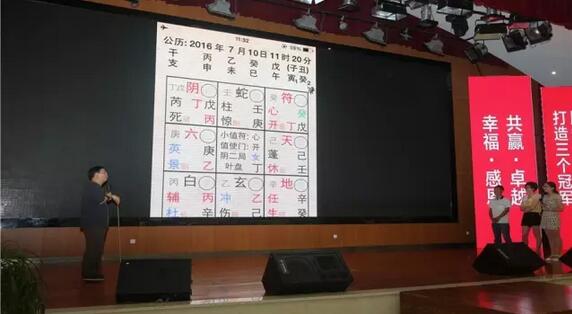 11:32
59%
公历: 2016 年 7 月 10 日 11 时 20 分
干 丙 乙 癸 戊 (子丑)
支 申 未 巳 午 寅¹ 癸²
丁戊 阴 壬 蛇 癸 符
芮 丁 戊 柱 壬 心 癸
死 丙 惊 庚 开 丁 戊
庚 六 小值符: 心 己 天
英 庚 值使门: 开 蓬 己
景 乙 阴二局 女 休 壬
叶盘
丙 白 乙 玄 辛 地
辅 丙 冲 乙 任 辛
杜 辛 伤 己 生 癸
共赢·卓越
幸福·感恩
打造三个冠军